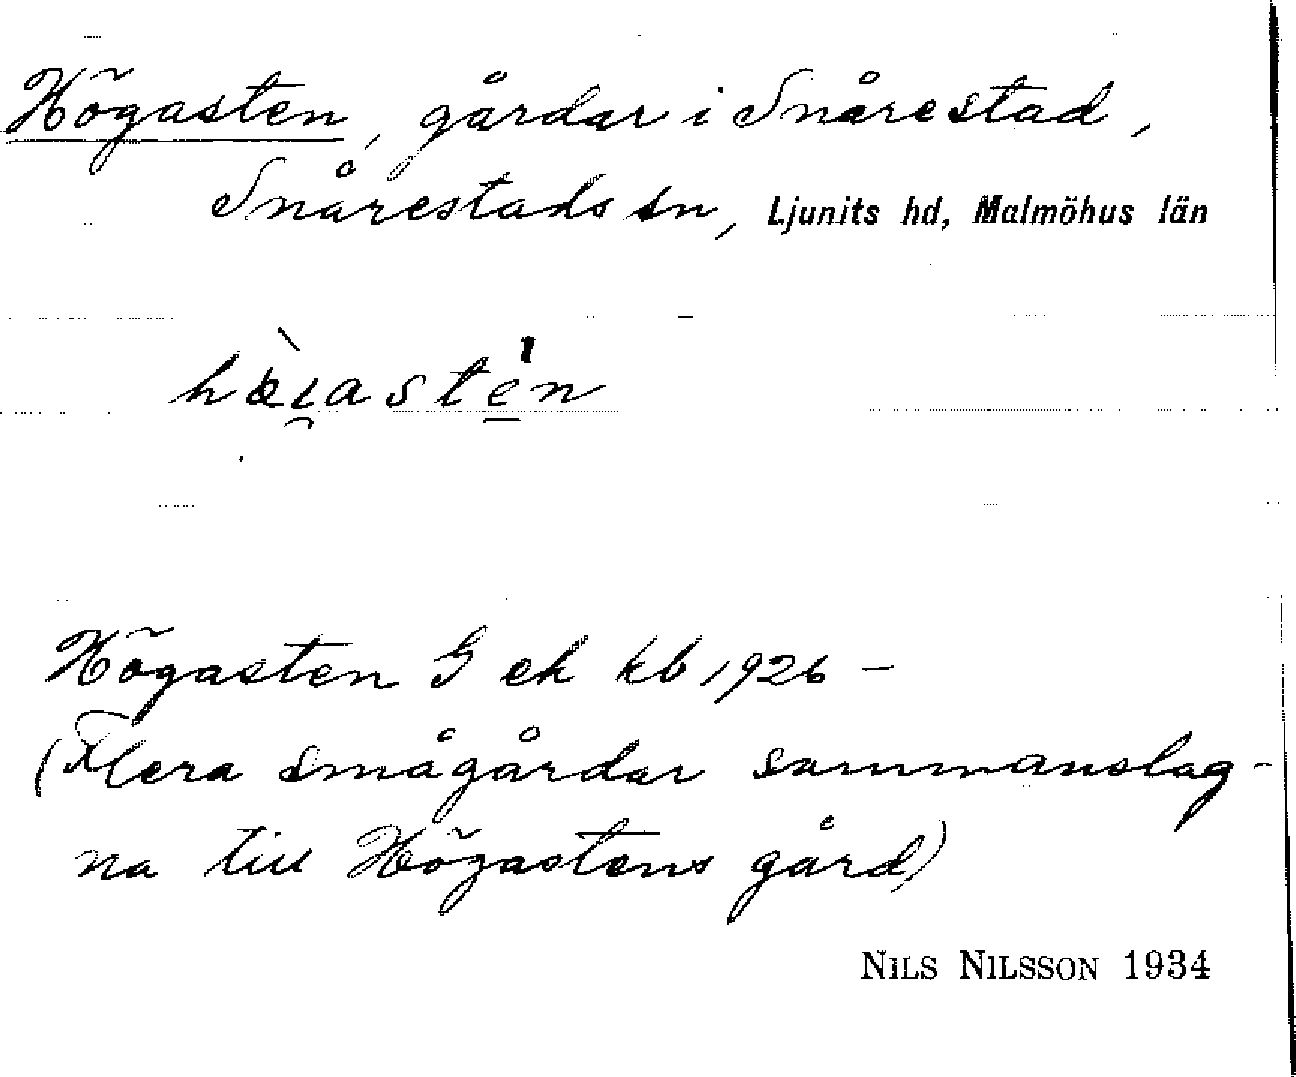 Högasten, gårdar i Snårestad,
Snårestads sn, Ljunits hd, Malmöhus län
Högasten G ek kb 1926 –
(Flera smågårdar sammanslag-
na till Högastens gård)
NILS NILSSON 1934